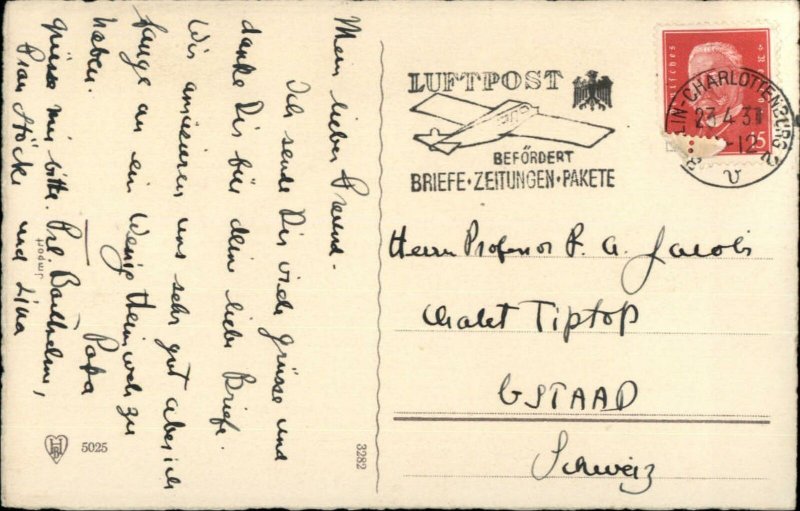 Mein lieber Freund.
Ich sende Dir viele Grüsse und
danke Dir für dein liebe Briefe.
Wir amüsieren uns sehr gut aber ich
fange an ein Wenig Heimweh zu
haben.
Papa
grüsse mir bitte Frl. Barthelme,
Frau Stöcke und Lina
Import
5025
3282
LUFTPOST
BEFÖRDERT
BRIEFE·ZEITUNGEN·PAKETE
BERLIN-CHARLOTTENBURG
23.4.31
-12
v
15
Herrn Professor P. A. Jacobs
Chalet Tiptop
GSTAAD
Schweiz